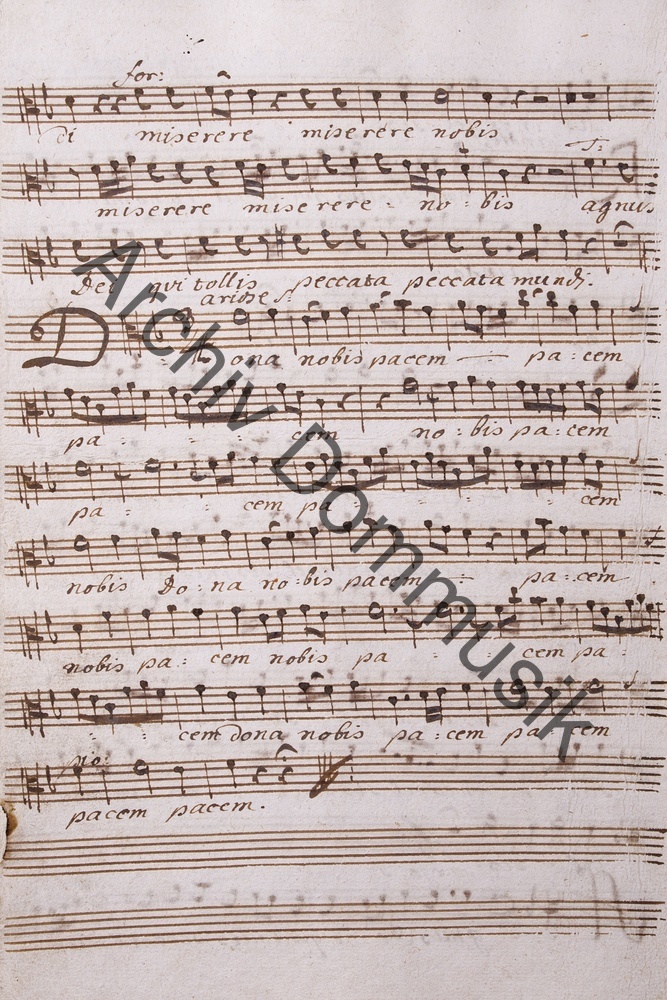 for:
di miserere miserere nobis
T:
miserere miserere - no : bis agnus
Dei qui tollis peccata peccata mundi.
Dona nobis pacem — pa : cem
pa : : cem no : bis pa : cem
pa : : cem pa : : : cem
nobis Do : na no : bis pacem — pa : cem
nobis pa : cem nobis pa : : cem pa :
: : cem dona nobis pa : cem pa : cem
pio:
pacem pacem.
Archiv Dommusik